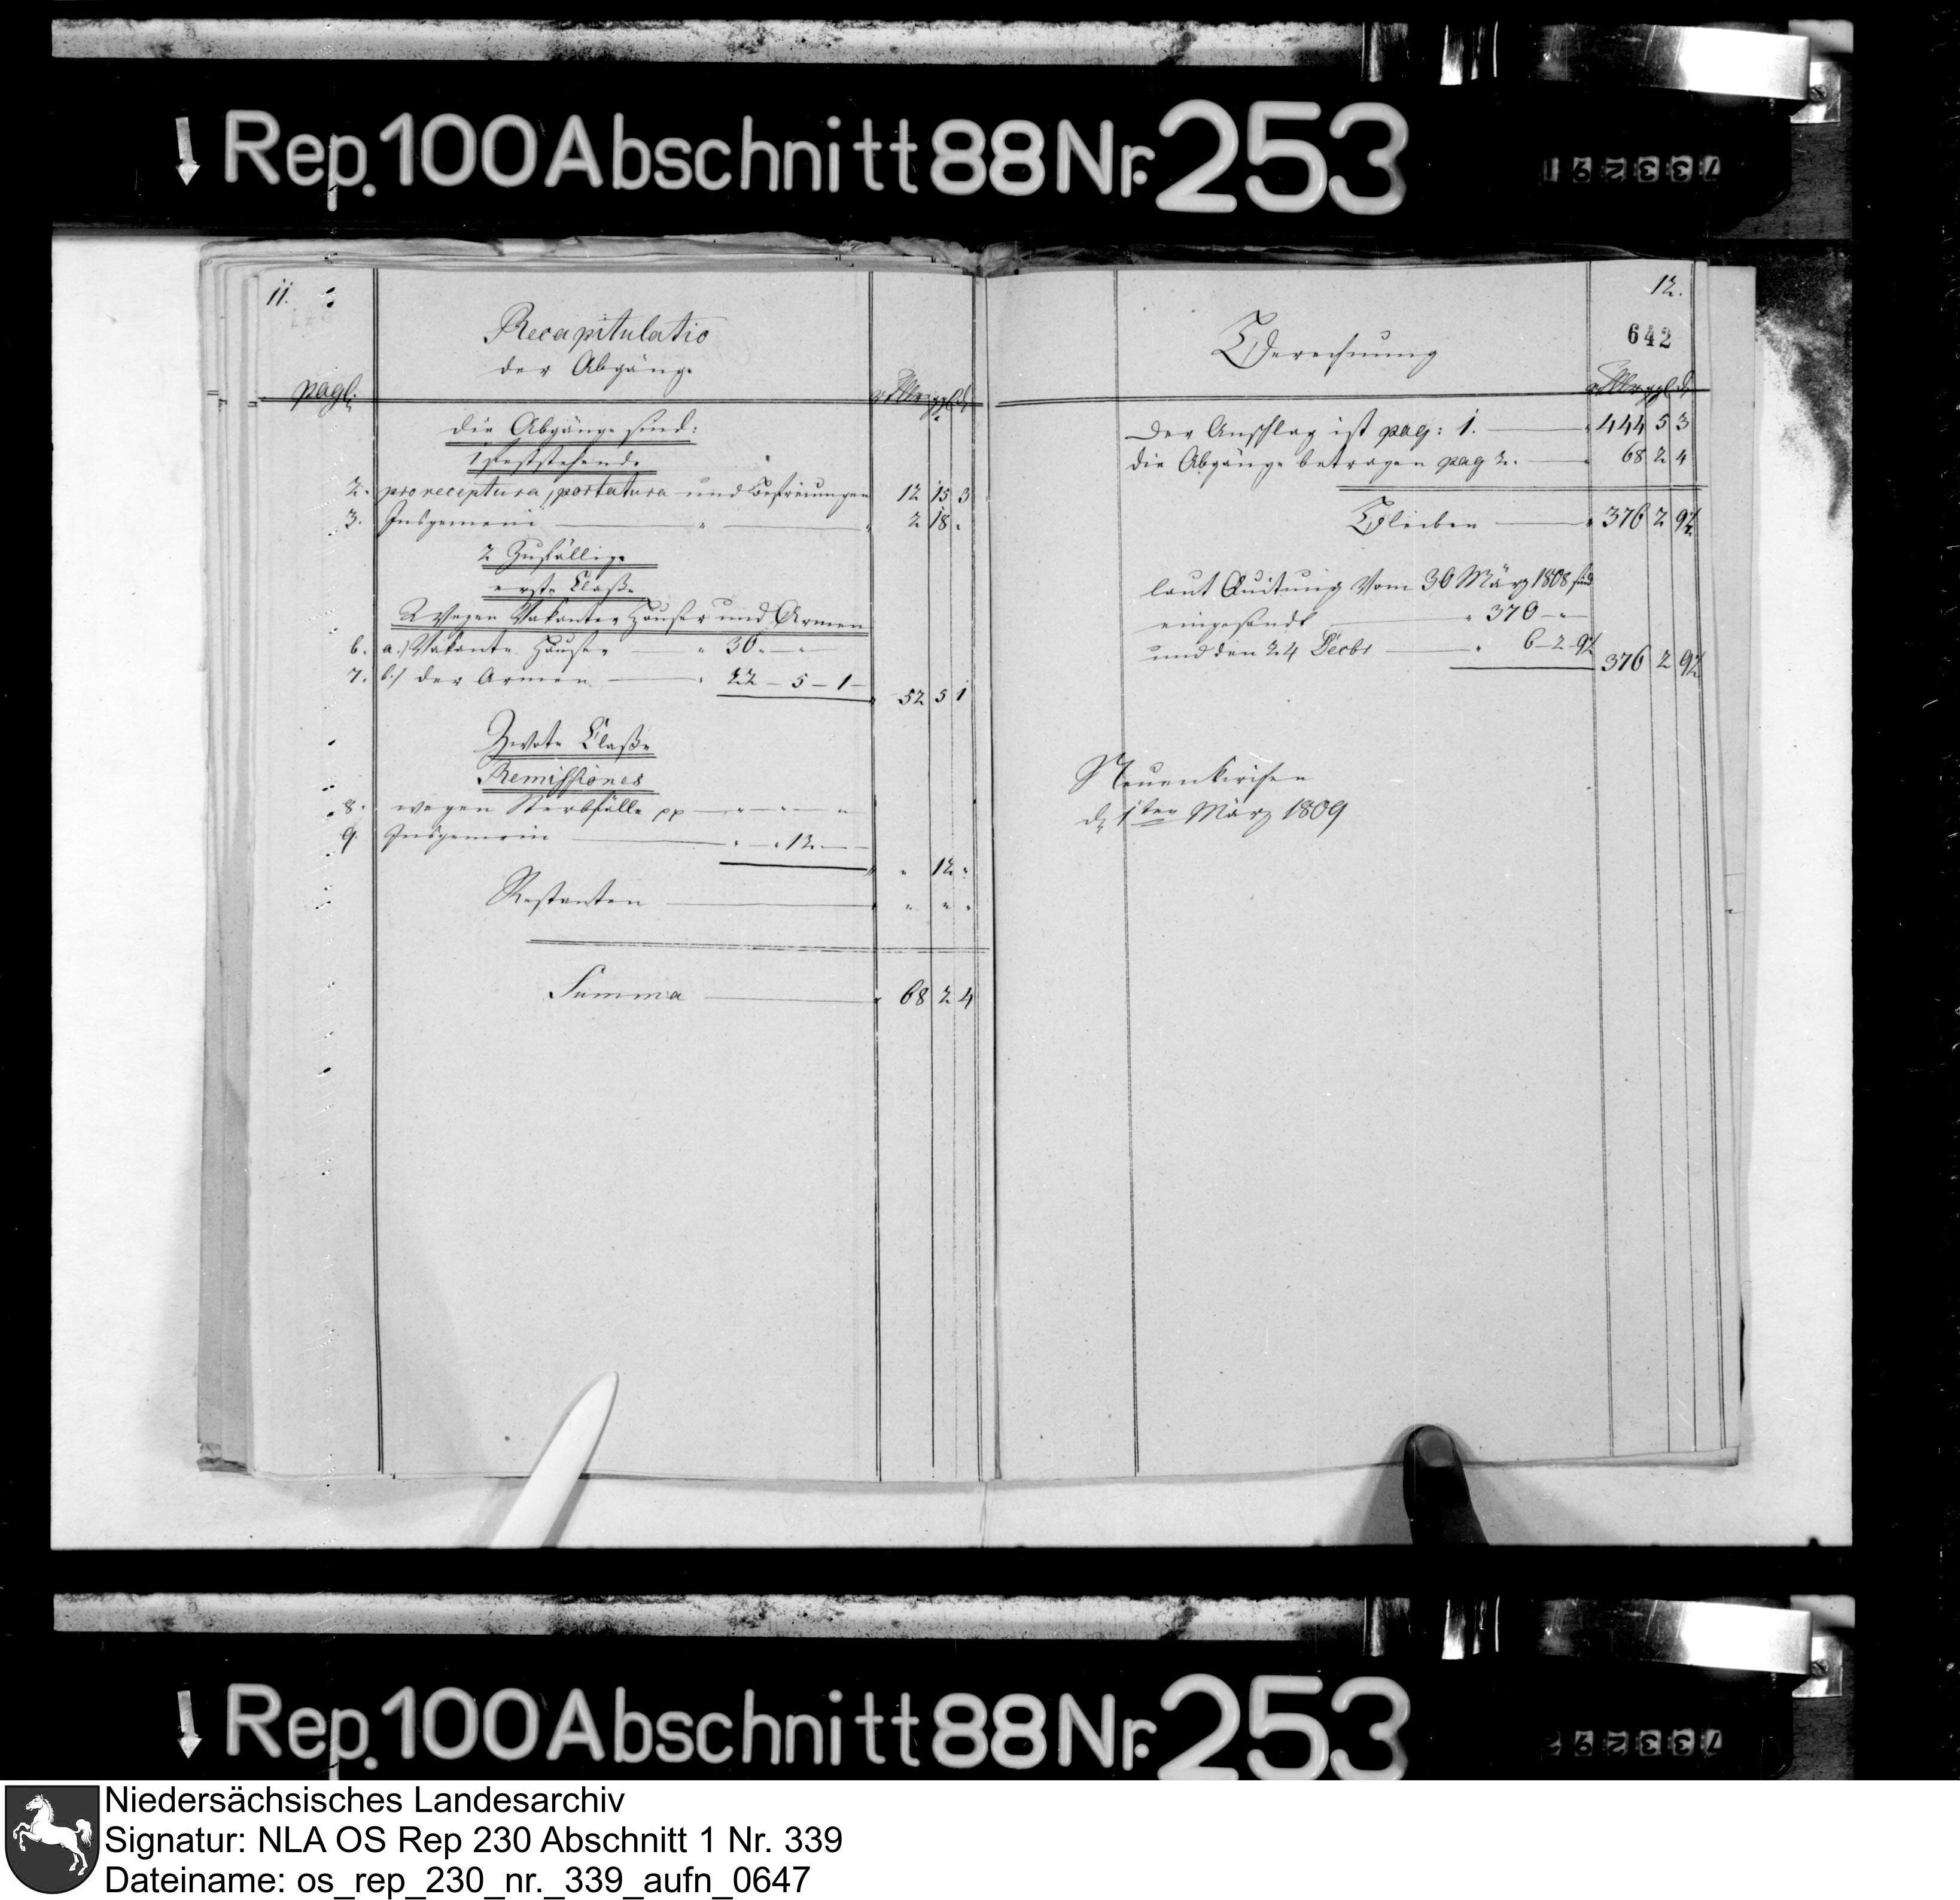 Rep. 100 Abschnitt 88 Nr. 253
11.
Recapitulatio
der Abgänge
pag:
die Abgänge sind:
1 feststehende
2. pro receptura, portatura und Befreiungen 12 15 3
3. Insgemein — " — " 2 18 "
2 Zufällige
erste Claße
Wegen Vakanter Häuser und Armen
6. a.) Vakante Häuser — " 30 " — "
7. b.) der Armen — " 22 – 5 – 1 –
" 52 5 1
Zwote Claße
Remissiones
8. wegen Sterbfälle pp — " — " — "
9. Insgemein — " — " 12 — "
" " 12 "
Restanten — " " " "
Summa — " 68 2 4
12.
642
Berechnung
Der Anschlag ist pag: 1. — " 444 5 3
die Abgänge betragen pag 2. — " 68 2 4
Bleiben — " 376 2 9½
laut Quitung vom 30 März 1808 sind
eingesandt — " 370 – "
und den 24 Decbr — " 6 – 2 – 9½
376 2 9½
Neuenkirchen
d 1ten März 1809
Rep. 100 Abschnitt 88 Nr. 253
Niedersächsisches Landesarchiv
Signatur: NLA OS Rep 230 Abschnitt 1 Nr. 339
Dateiname: os_rep_230_nr._339_aufn_0647